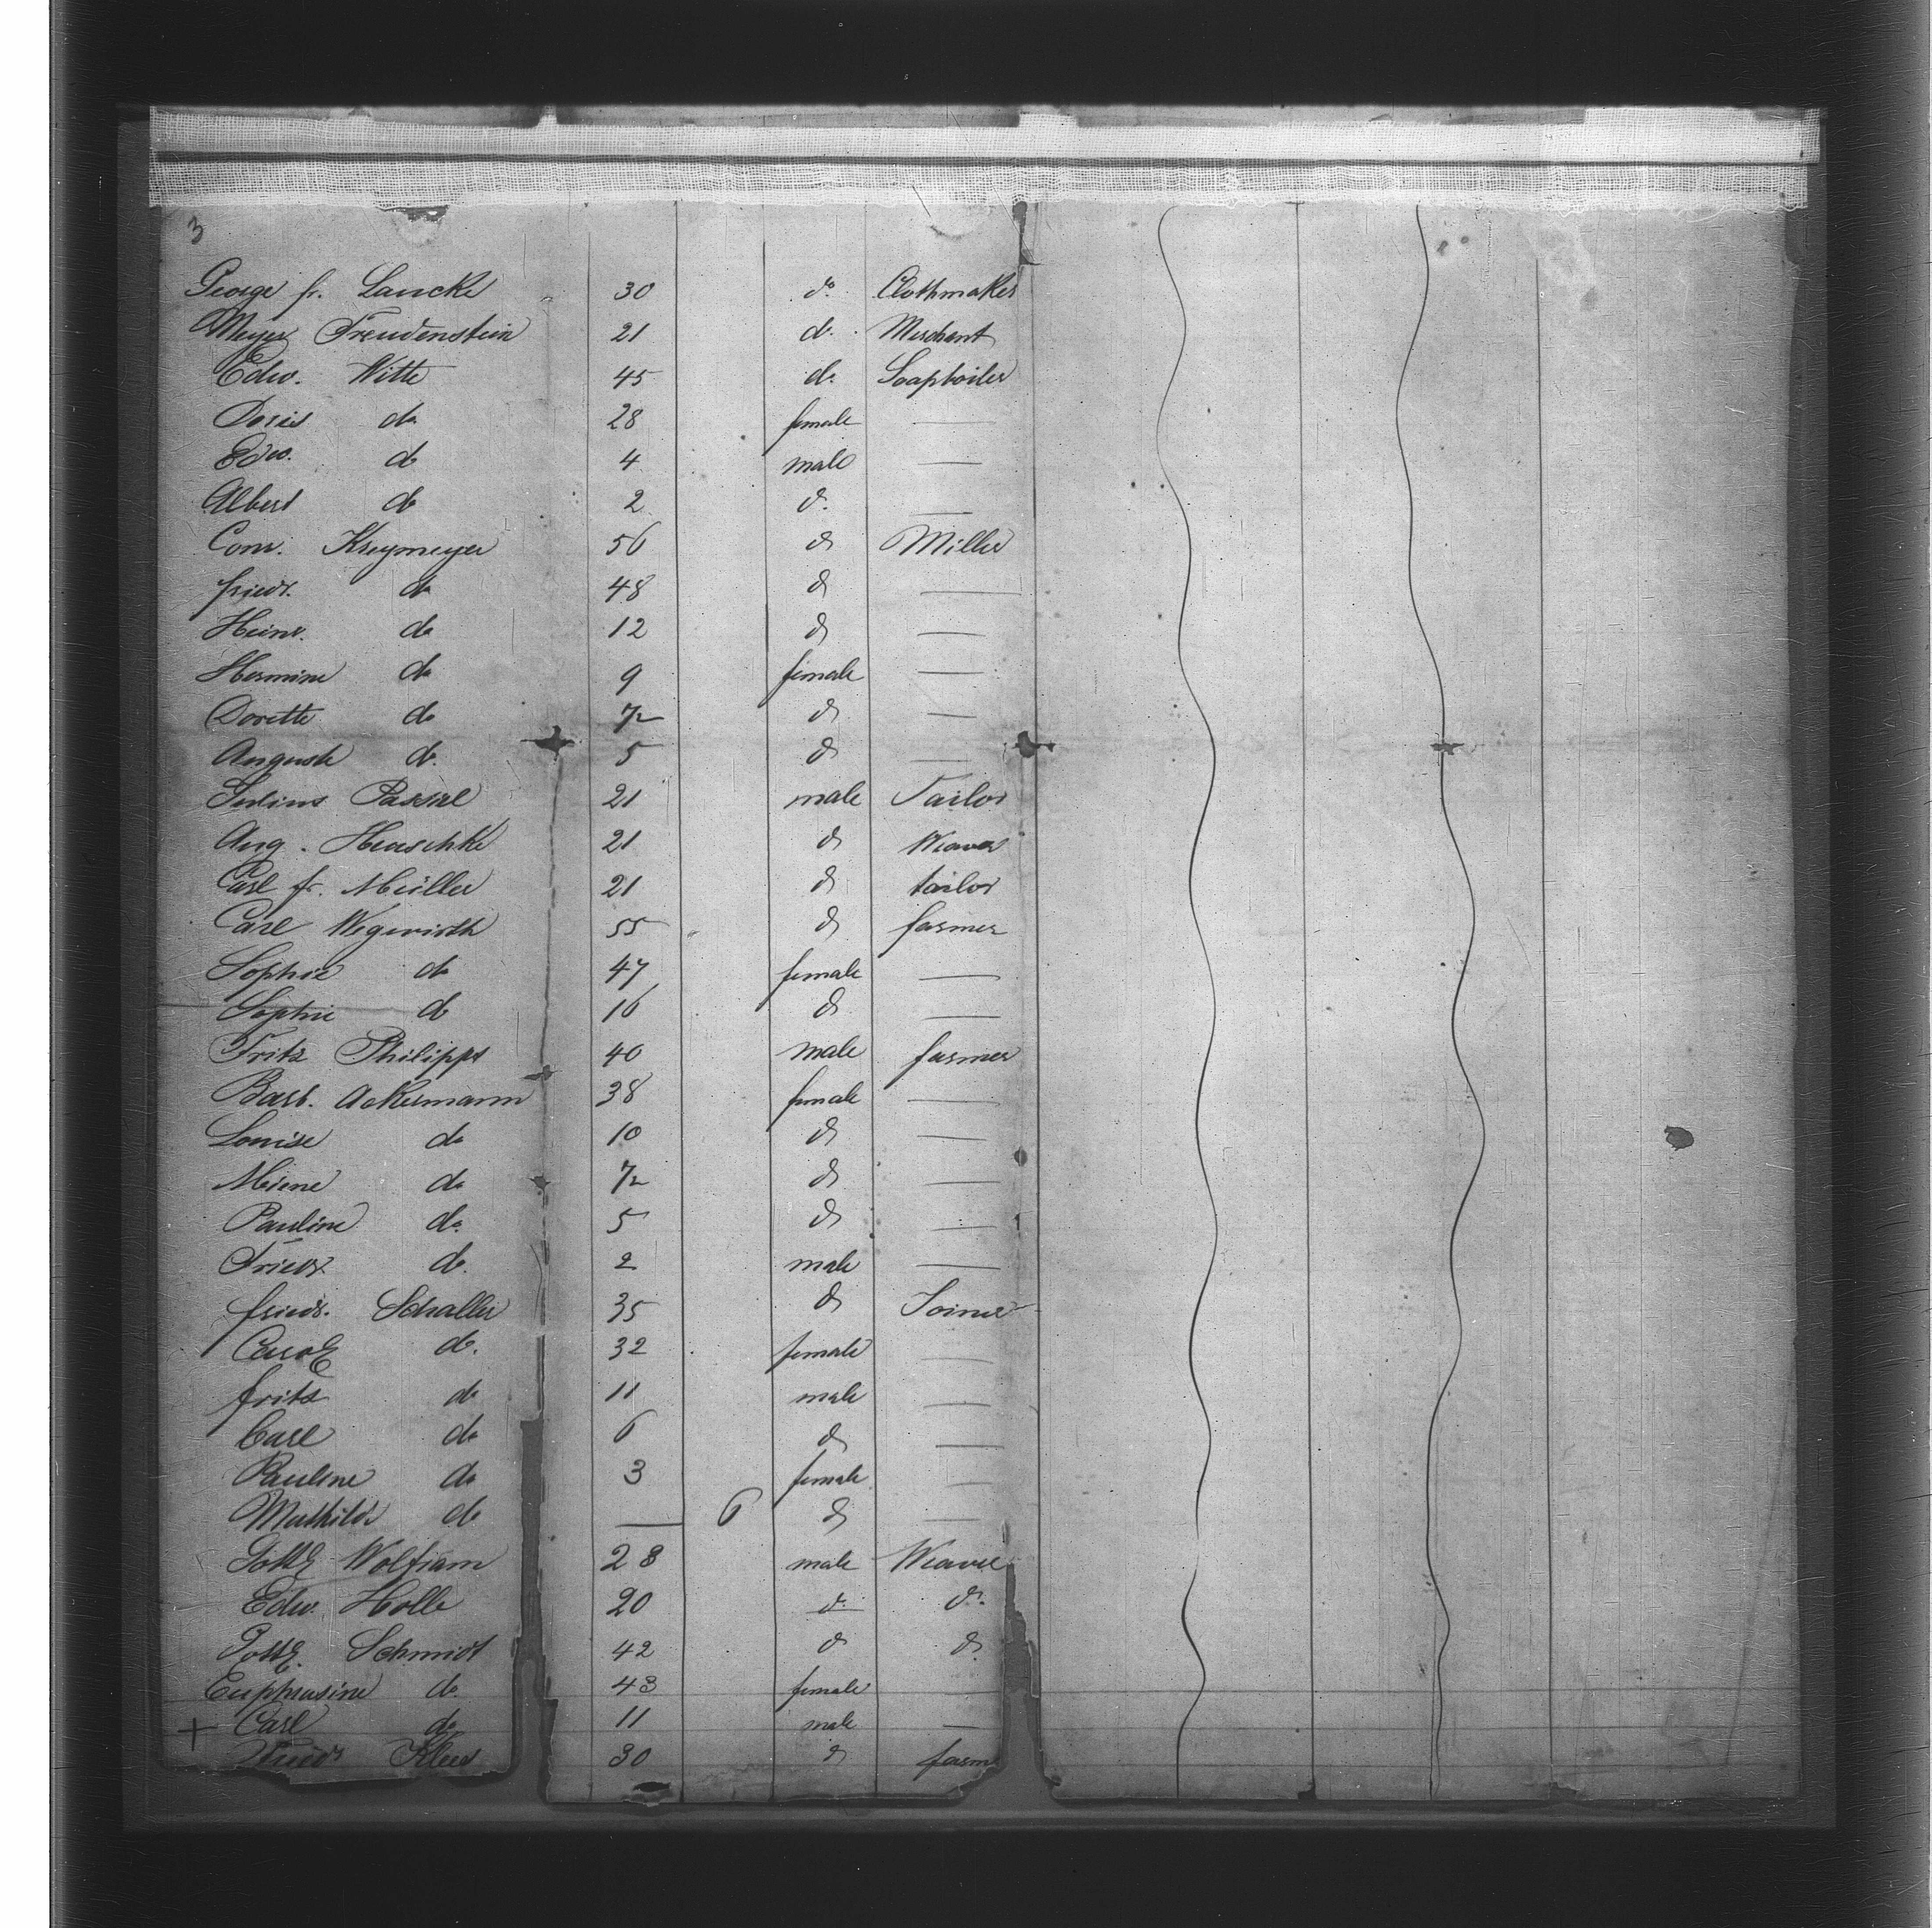 3
George fr. Lancke 30 do. Clothmaker
Meyer Freudenstein 21 do. Merchant
Edw. Witte 45 do. Soapboiler
Doris do 28 female —
Edw. do 4 male —
Albert do 2 do. —
Conr. Kreymeyer 56 do Miller
friedr. do 48 do —
Heinr. do 12 do —
Hermine do 9 female —
Dorette do 7 do —
Auguste do. 5 do —
Julius Passal 21 male Tailor
Aug. Henschke 21 do Weaver
Carl fr. Müller 21 do tailor
Carl Wegewirth 55 do farmer
Sophie do 47 female —
Sophie do 16 do —
Fritz Philipps 40 male farmer
Barb. Ackermann 38 female —
Louise do 10 do —
Miene do 7 do —
Pauline do. 5 do —
Friedr. do. 2 male —
friedr. Schaller 35 do Joiner
Carol do. 32 female —
fritz do 11 male —
Carl do 6 do —
Pauline do 3 female —
Mathilde do — 6 do —
Gottl Wolfram 28 male Weaver
Edw. Holle 20 do. do.
Gottl. Schmidt 42 do do.
Euphrasine do. 43 female —
+ Carl do 11 male —
Friedr 30 do farm